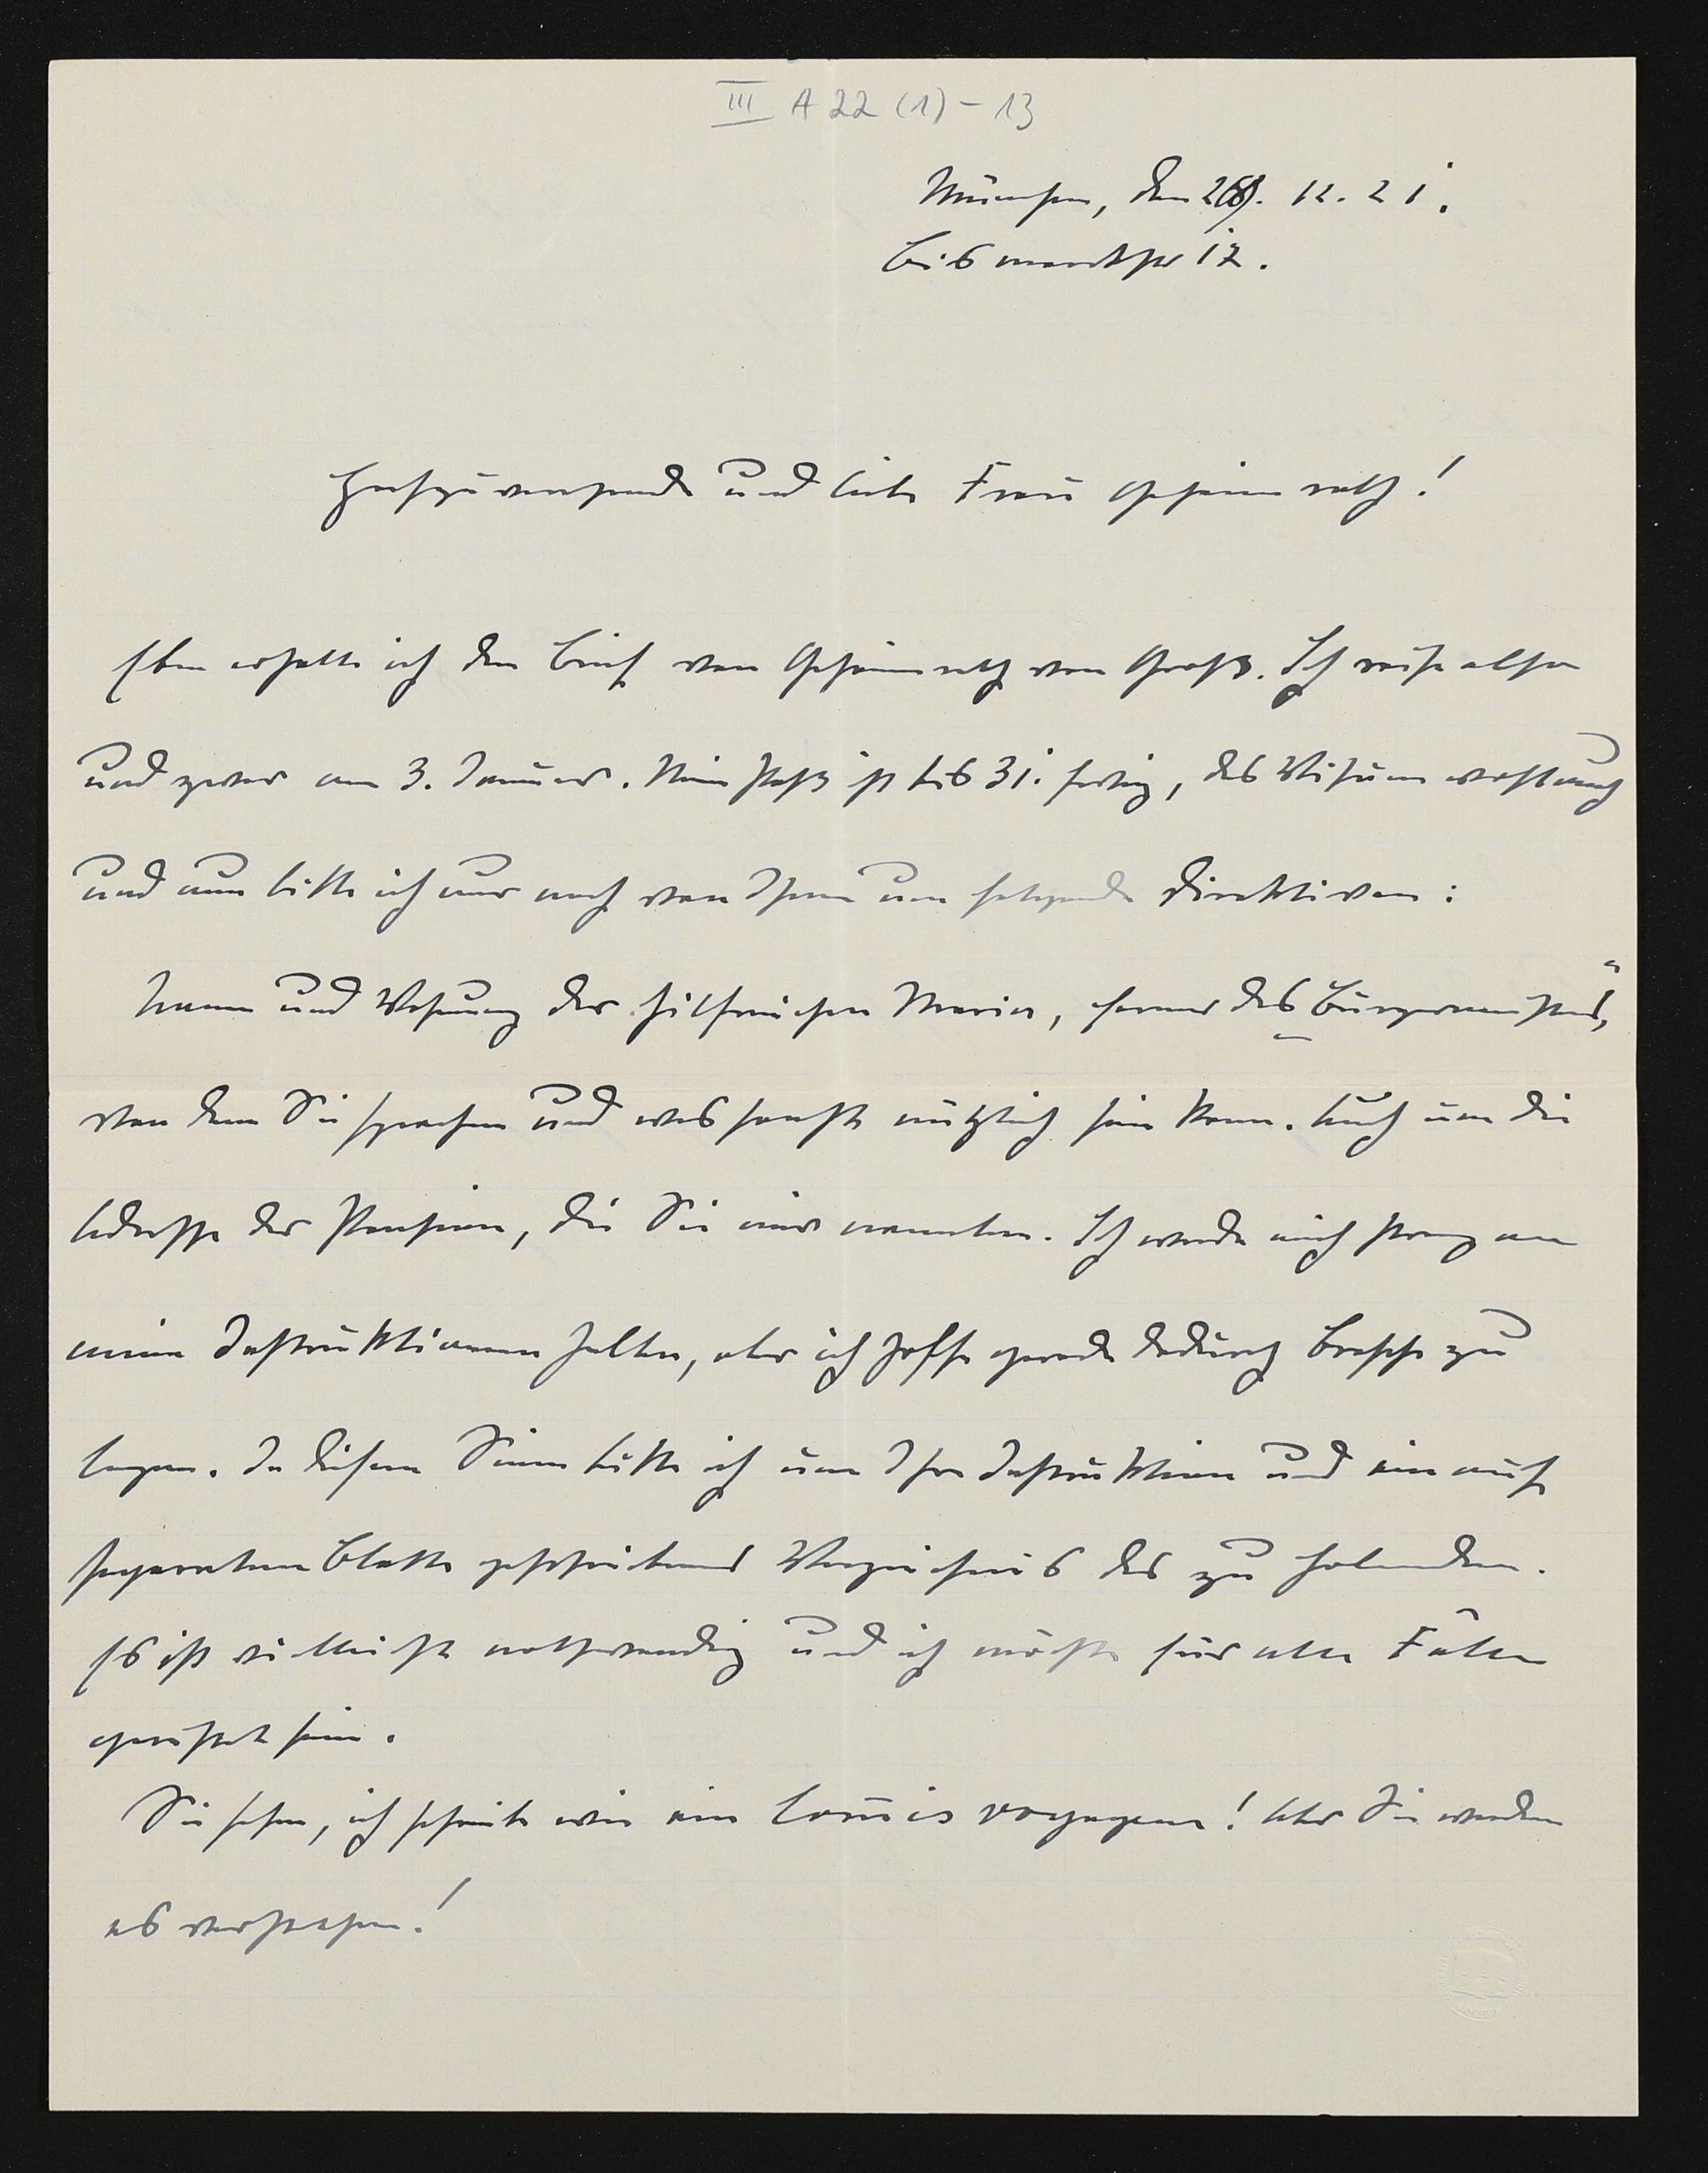 III A 22 (1) - 13
München, den 28. 12. 21.
Bismarckstr 17.
Hochzuverehrende und liebe Frau Geheimrath!
Eben erhalte ich den Brief von Geheimrath von Groß. Ich reise also
und zwar am 3. Januar. Mein Paß ist bis 31. fertig, das Visum wohl auch
und nun bitte ich nur noch von Ihnen um folgende Direktiven:
Name und Wohnung der hilfreichen Maria, ferner des Bürgermeisters,
von dem Sie sprachen und was sonst nützlich sein kann. Auch um die
Adresse der Pension, die Sie mir nannten. Ich werde mich streng an
meine Instruktionen halten, aber ich hoffe gerade dadurch Bresche zu
legen. In diesem Sinne bitte ich um Ihre Instruktion und ein auf
separatem Blatte geschriebenes Verzeichnis des zu holenden.
Es ist vielleicht nothwendig und ich möchte für alle Fälle
gerüstet sein.
Sie sehen, ich schreibe wie ein Comis voyageur! Aber Sie werden
es verstehen!